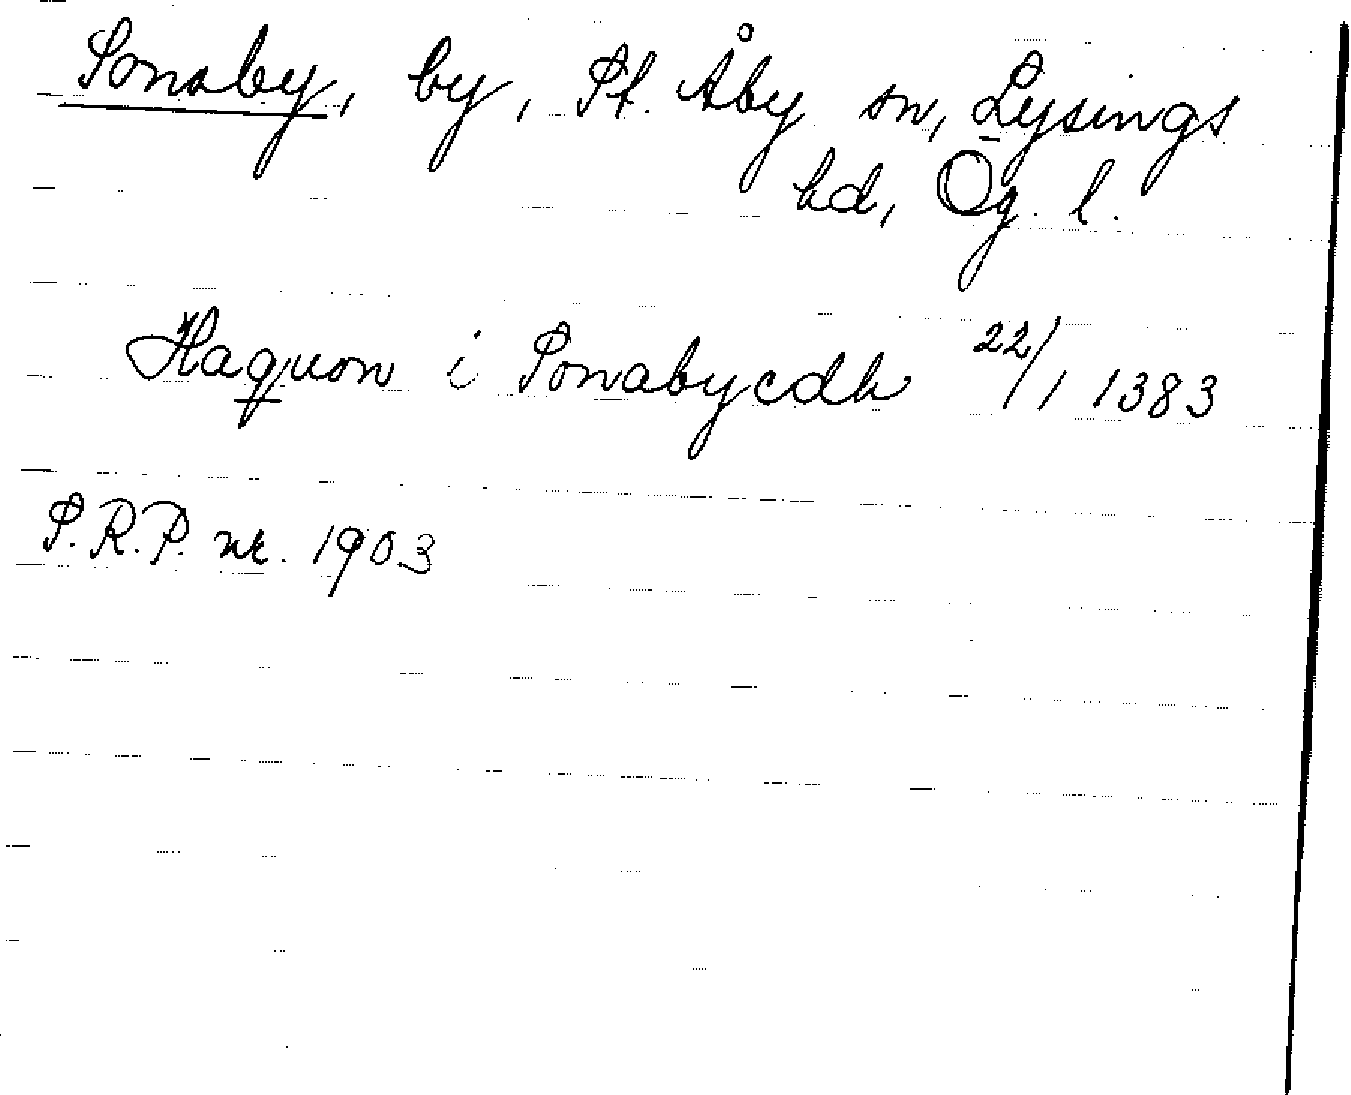 Sonaby, by, St. Åby sn, Lysings
hd, Ög. l.
Haquon i Sonabycdh 22/1 1383
S.R.P. nr. 1903